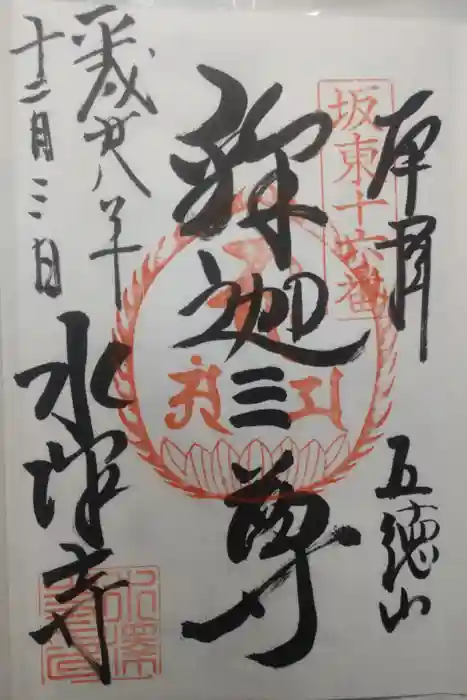 奉拜
五徳山
坂東十六番
釈迦三尊
平成廿八年
十二月三日
水沢寺
水澤